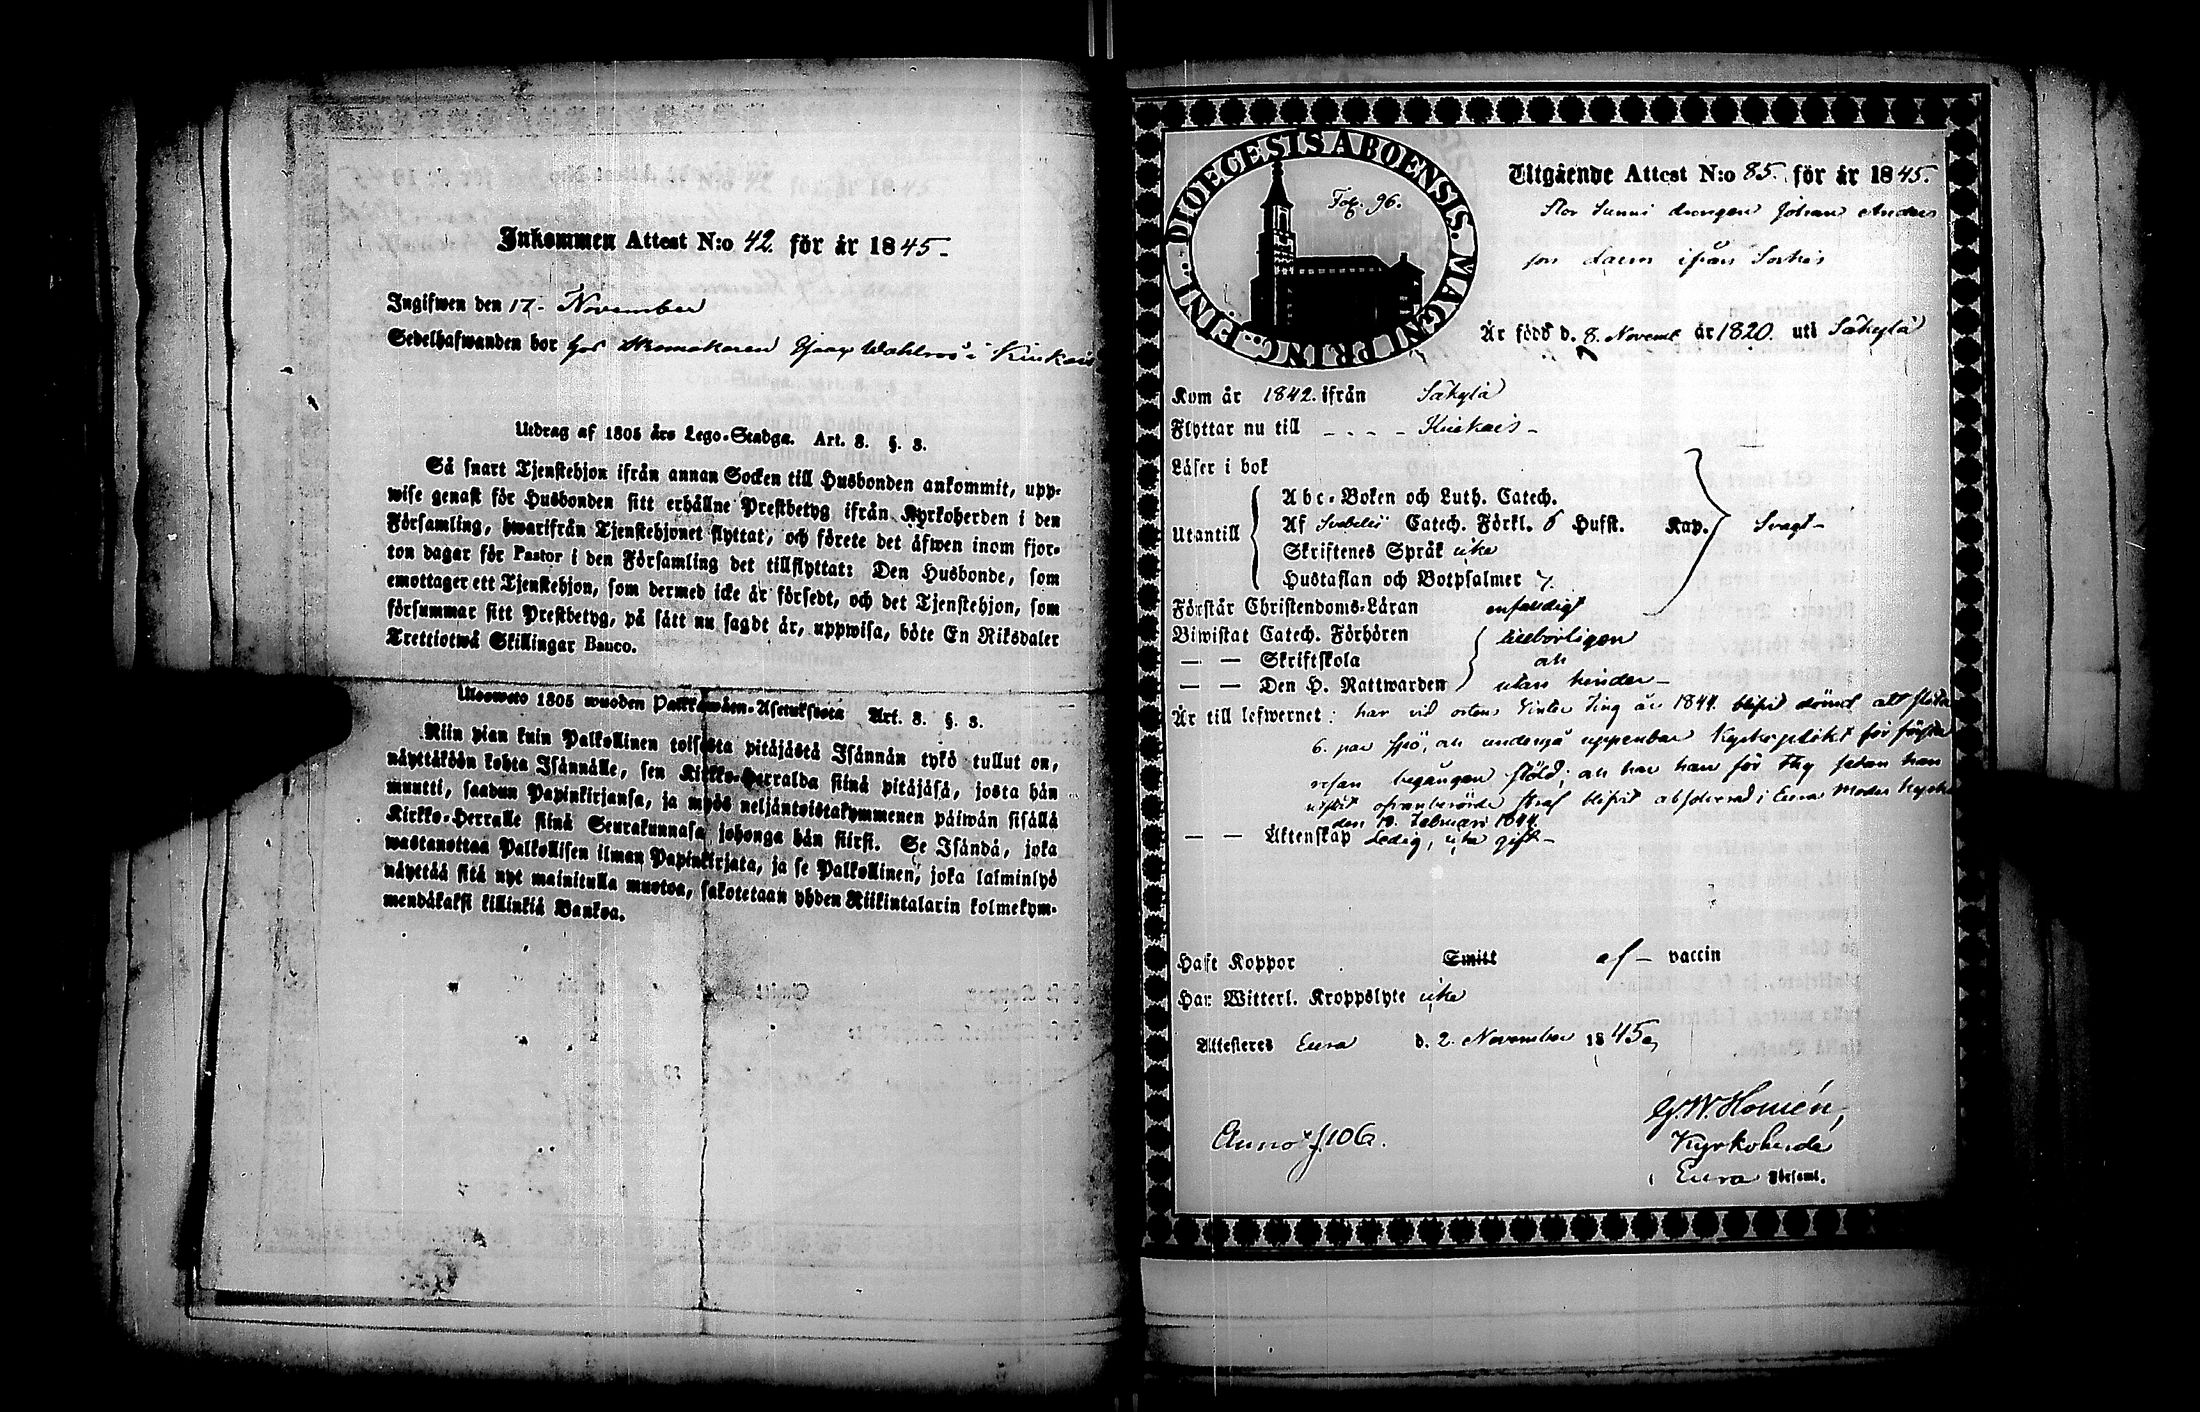 Inkommen Attest N:o 42 för år 1845.
Ingifwen den 17. November
Sedelhafwanden bor hos i
Utdrag af 1805 års Lego-Stadga. Art. 8. §. 3.
Så snart Tjenstehjon ifrån annan Socken till Husbonden ankommit, upp-
wise genast för Husbonden sitt erhållne Prestbetyg ifrån Kyrkoherden i den
Församling, hwarifrån Tjenstehjonet flyttat, och förete det äfwen inom fjor-
ton dagar för Pastor i den Församling det tillflyttat: Den Husbonde, som
emottager ett Tjenstehjon, som dermed icke är försedt, och det Tjenstehjon, som
försummar sitt Prestbetyg, på sätt nu sagdt är, uppwisa, böte En Riksdaler
Trettiotwå Skillingar Banco.
Ulosweto 1805 wuoden Palkkawäen-Asetuksesta Art. 8. §. 3.
Niin pian kuin Palkollinen toisesta pitäjästä Isännän tykö tullut on,
näyttäköön kohta Isännälle, sen Kirkko-Herralda siinä pitäjäsä, josta hän
muutti, saadun Papinkirjansa, ja myös neljäntoistakymmenen päiwän sisällä
Kirkko-Herralle siinä Seurakunnasa johonga hän siirsi. Se Isändä, joka
wastanottaa Palkollisen ilman Papinkirjata, ja se Palkollinen, joka laiminlyö
näyttää sitä nyt mainitulla muotoa, sakotetaan yhden Riikintalarin kolmekym-
mendäkaksi killinkiä Bankoa.
DIOECESIS ABOENSIS. MAGNI PRINC. FINL.
Fol. 96.
Utgående Attest N:o 85. för år 1845.
drängen Johan Anders
son ifrån
Är född d. 8. Novemb år 1820. uti Säkylä
Kom år 1842. ifrån Säkylä
Flyttar nu till - - - - Kiukais -
Läser i bok
Utantill
Abc-Boken och Luth. Catech.
Af Svebelii Catech. Förkl. 6 Hufst. Kap. Svagt -
Skriftenes Språk icke
Hustaflan och Botpsalmer 7.
Förstår Christendoms-Läran enfaldigt
Biwistat Catech. Förhören
— — Skriftskola och
— — Den H. Nattwarden utan hinder -
Är till lefwernet: har vid Vinter Ting år 1844. blifvit dömd att
6. par spö, och undergå uppenbar Kyrkoplikt för första
resan begången stöld; och har han för thy sedan han
straf blifvit absolverad i Eura Moder Kyrka
den Februari 1844.
— — Äktenskap Ledig, icke gift -
Haft Koppor Smitt af - vaccin
Har Witterl. Kroppslyte icke
Attesteres Eura d. 2. November 1845,
G. W. Homén,
Kyrkoherde
i Eura Församl.
Anno f. 106.